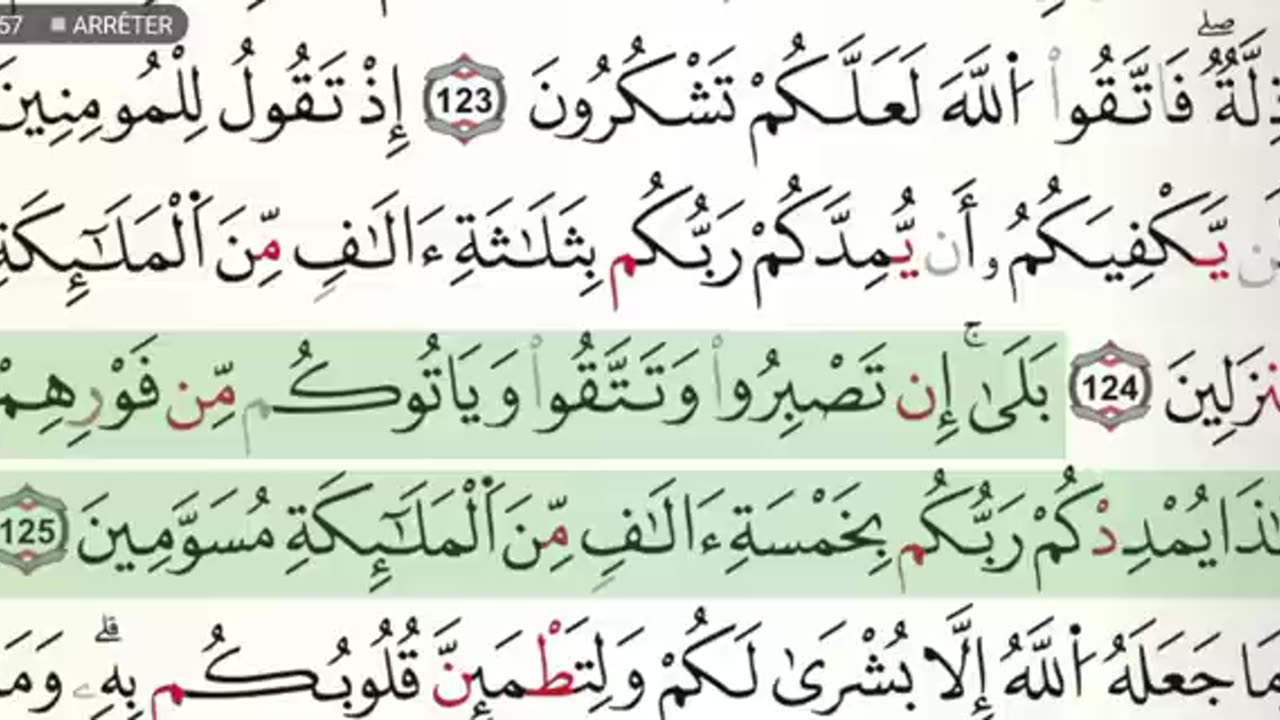 57 ■ ARRÊTER
ذِلَّةٌۖ فَاتَّقُوا۟ اَ۬للَّهَ لَعَلَّكُمْ تَشْكُرُونَ 123 إِذْ تَقُولُ لِلْمُومِنِينَ
يَّكْفِيَكُمُۥ أَن يُّمِدَّكُمْ رَبُّكُم بِثَلَٰثَةِ ءَالَٰفٖ مِّنَ اَ۬لْمَلَٰٓئِكَةِ
نزَلِينَ 124 بَلَىٰۚ إِن تَصْبِرُوا۟ وَتَتَّقُوا۟ وَيَاتُوكُم مِّن فَوْرِهِمْ
ذَا يُمْدِدْكُمْ رَبُّكُم بِخَمْسَةِ ءَالَٰفٖ مِّنَ اَ۬لْمَلَٰٓئِكَةِ مُسَوَّمِينَ 125
مَا جَعَلَهُ اُ۬للَّهُ إِلَّا بُشْرَىٰ لَكُمْ وَلِتَطْمَئِنَّ قُلُوبُكُم بِهِۦۗ وَمَ